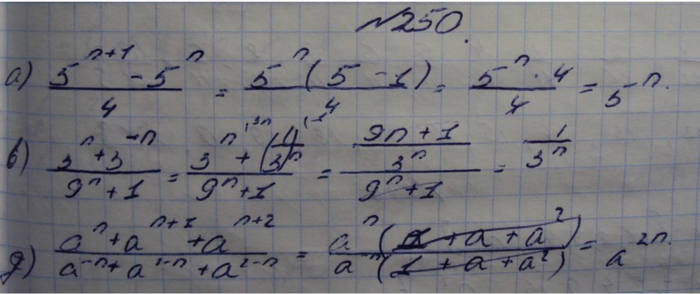 №250.
а) (5^(n+1) - 5^n)/4 = 5^n(5 - 1)/4 = (5^n · 4)/4 = 5^n.
в) (3^n + 3^(-n))/(9^n + 1) = (3^n + (1/3^n))/(9^n + 1) = ((9n + 1)/3^n)/(9^n + 1) = 1/3^n
д) (a^n + a^(n+1) + a^(n+2))/(a^(-n) + a^(1-n) + a^(2-n)) = a^n(1 + a + a^2)/(a^(-n)(1 + a + a^2)) = a^(2n).